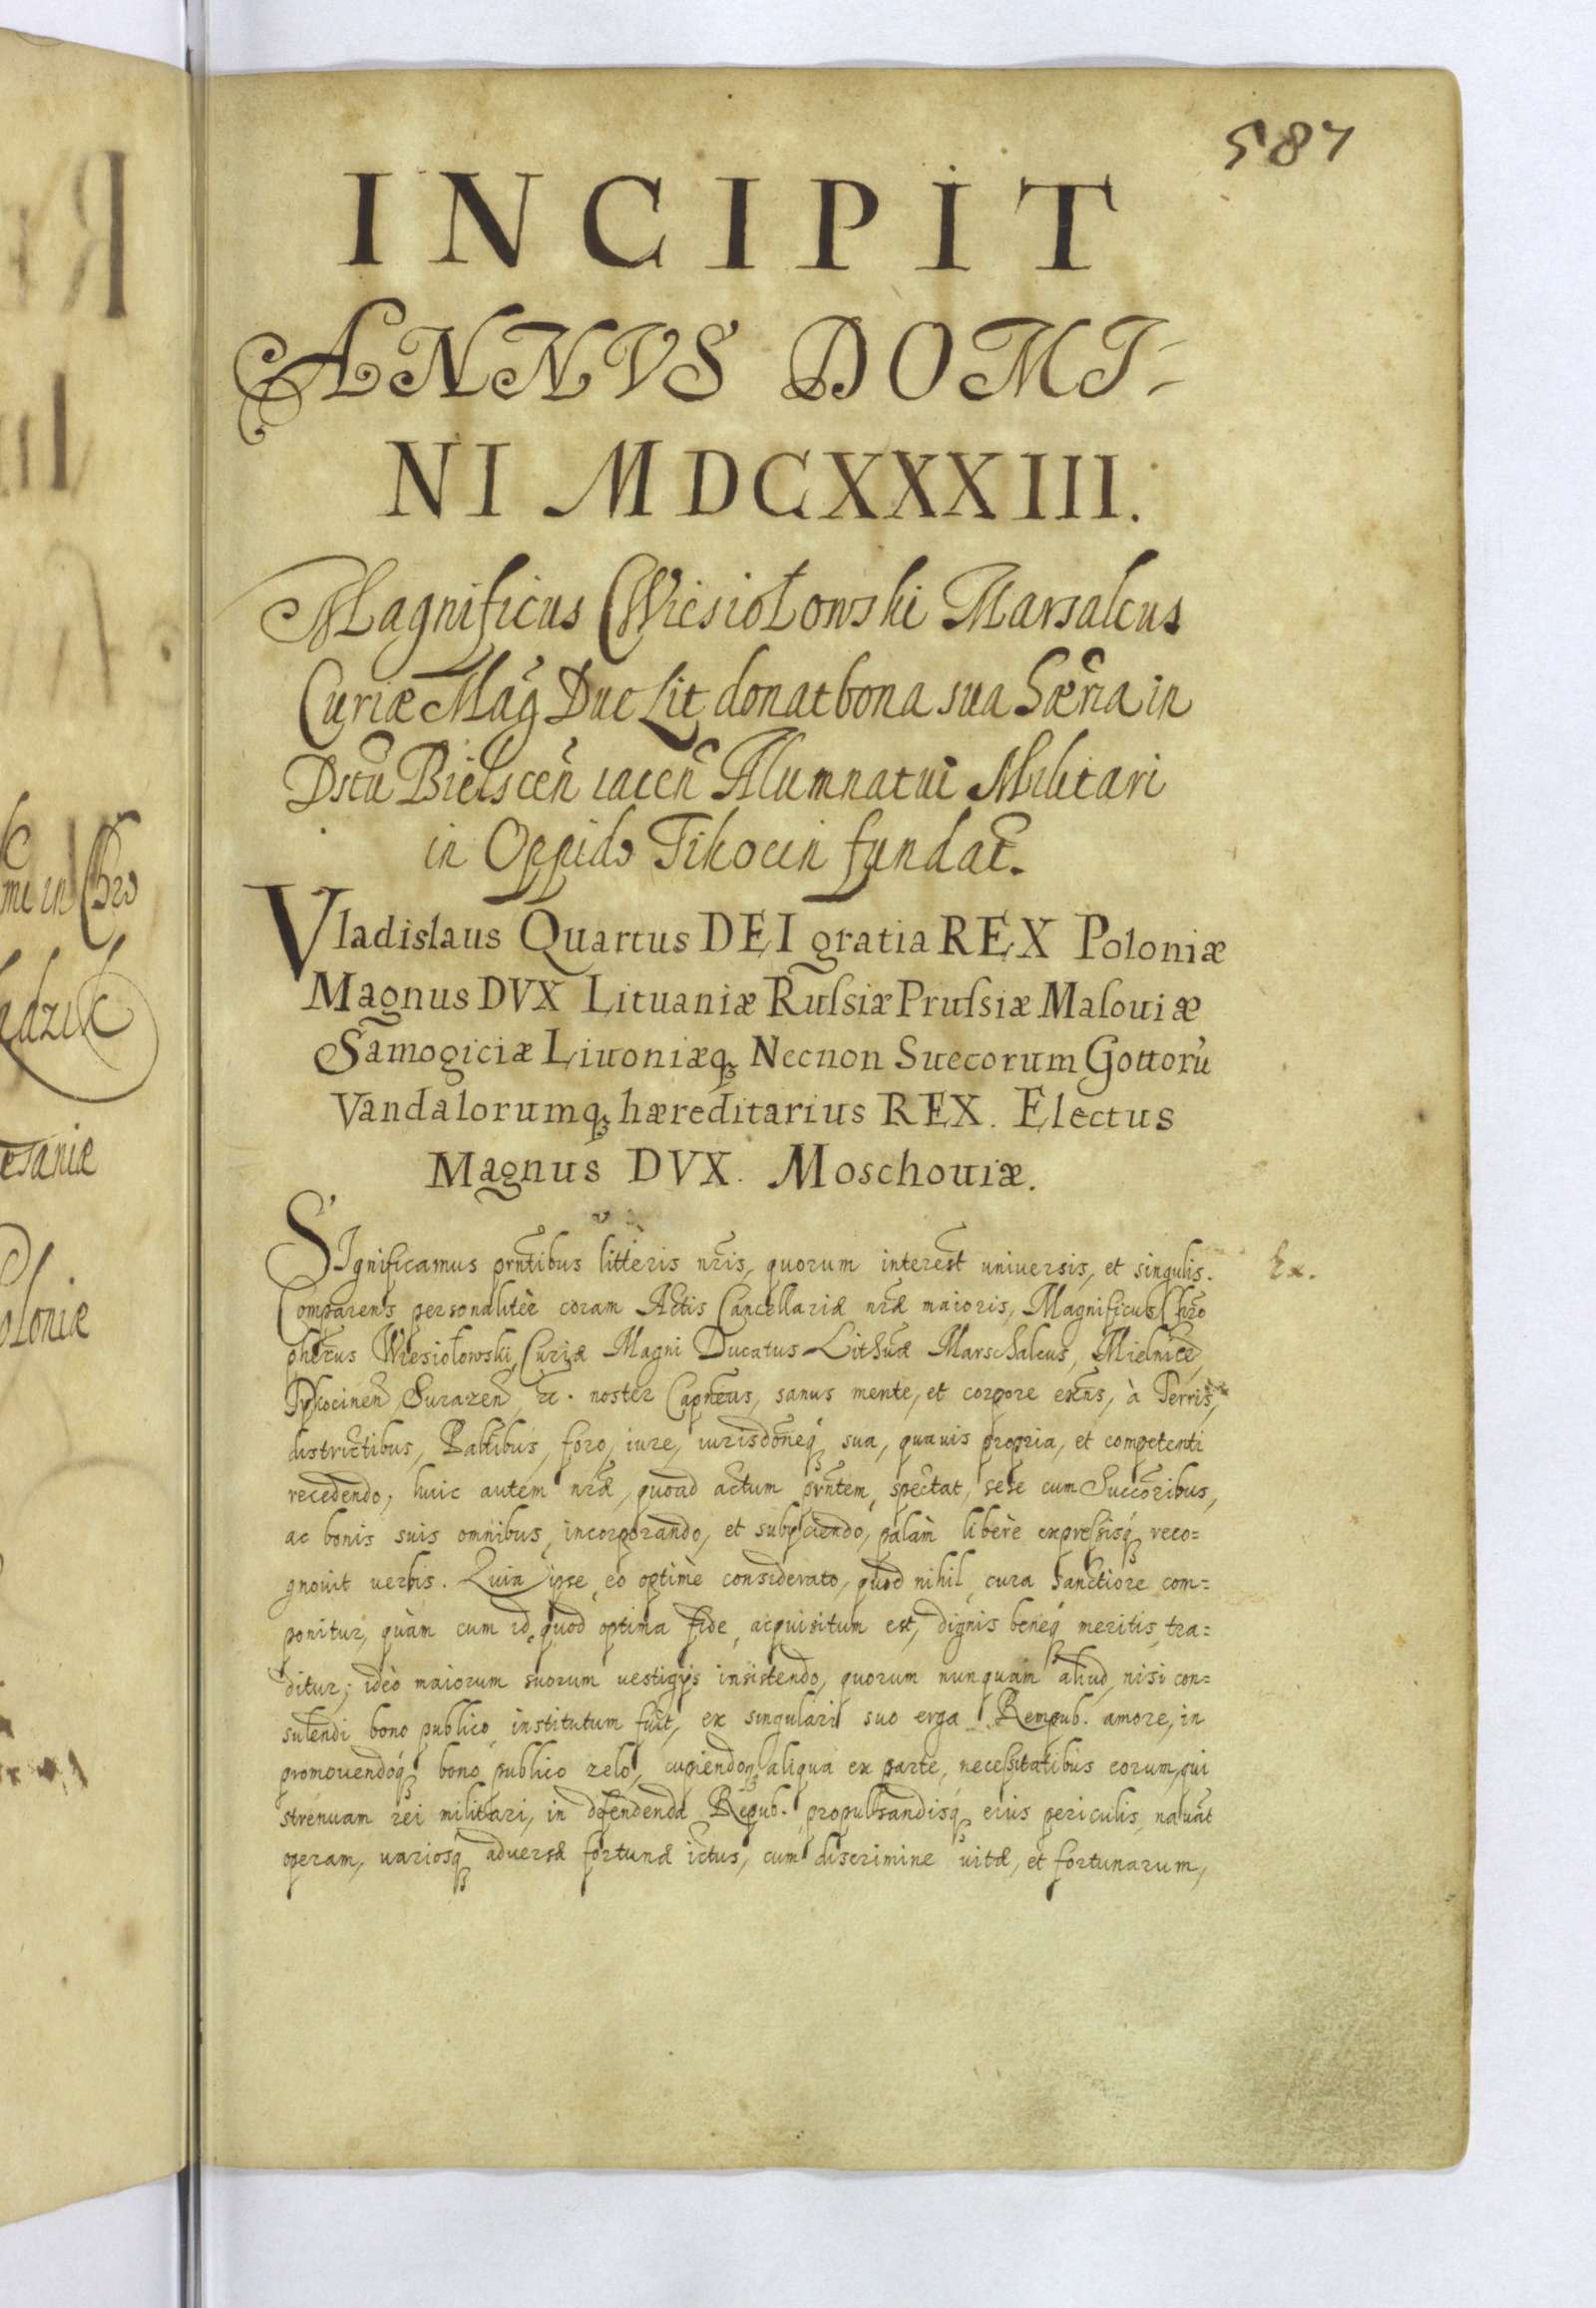 587
INCIPIT
ANNVS DOMI-
NI MDCXXXIII.
Magnificus Wiesiołowski Marsalcus
Curiæ Mag Duc Lit donat bona sua hæria in
Dstu Bielscen iacen Alumnatui Militari
in Oppido Tikocin fundat.
Vladislaus Quartus DEI gratia REX Poloniæ
Magnus DVX Lituaniæ Rußiæ Prußiæ Masouiæ
Samogiciæ Liuoniæq Necnon Suecorum Gottorũ
Vandalorumq hæreditarius REX. Electus
Magnus DVX. Moschouiæ.
SIgnificamus prntibus litteris nris, quorum interest uniuersis, et singulis. Ex.
Comparens personalitèr coram Actis Cancellariæ nræ maioris, Magnificus Chro
pherus Wiesiołowski, Curiæ Magni Ducatus Lithuæ Marschalcus, Mielnicen,
Tykocinen, Surazen, etc. noster Capneus, sanus mente, et corpore exns, à Terris,
districtibus, Palatibus, foro, iure, iurisdoneq sua, quauis propria, et competenti
recedendo, huic autem nræ, quoad actum prntem, spectat, sese cum Succoribus,
ac bonis suis omnibus, incorporando, et subijciendo, palàm liberè expreßisq, reco=
gnouit uerbis. Quia ipse, eo optimè considerato, quod nihil, cura sanctiore com=
ponitur, quàm cum id, quod optima fide, acquisitum est, dignis beneq meritis, tra=
ditur; ideò maiorum suorum uestigijs insistendo, quorum nunquam aliud, nisi con=
sulendi bono publico, institutum fuit, ex singulari suo erga Rempub. amore, in
promouendoq bono publico zelo, cupiendoq aliqua ex parte, neceßitatibus eorum, qui
strenuam rei militari, in defendenda Repub. propulsandisq eius periculis, nauant
operam, uariosq aduersæ fortunæ ictus, cum discrimine uitæ, et fortunarum,